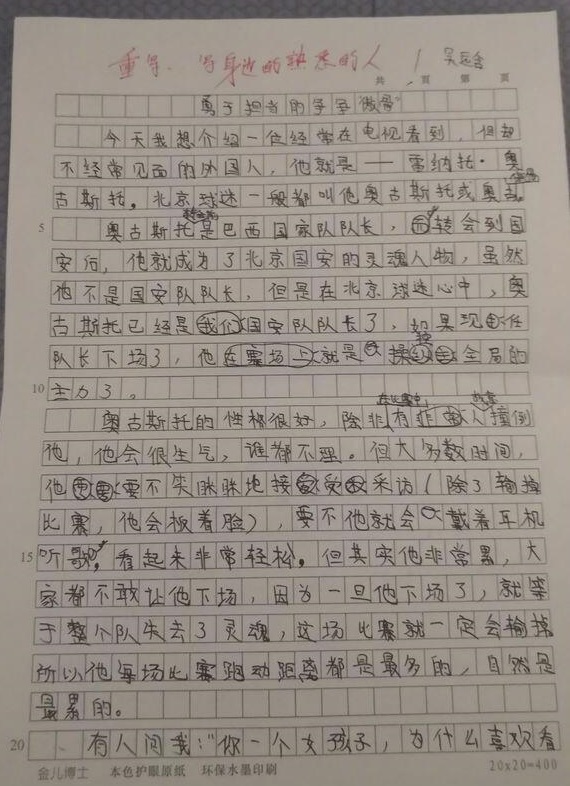 重写、写身边的熟悉的人
共 页 第 页
勇于担当的争争"傲骨"
今天我想介绍一位经常在电视看到,但却
不经常见面的外国人,他就是——雷纳托·奥
古斯托。北京球迷一般都叫他奥古斯托或奥古。
5 奥古斯托是巴西国家队队长,转会到国
安后,他就成为了北京国安的灵魂人物,虽然
他不是国安队队长,但是在北京球迷心中,奥
古斯托已经是我们国安队队长了,如果现任
队长下场了,他在赛场上就是操控全局的
10 主力了。
奥古斯托的性格很好,除非在比赛中有人故意撞倒
他,他会很生气,谁都不理。但大多数时间,
他要不笑眯眯地接受采访(除了输掉
比赛,他会板着脸),要不他就会戴着耳机
15 听歌,看起来非常轻松。但其实他非常累,大
家都不敢让他下场,因为一旦他下场了,就等
于整个队失去了灵魂,这场比赛就一定会输掉
所以他每场比赛跑动距离都是最多的,自然是
最累的。
20 有人问我:"你一个女孩子,为什么喜欢看
金儿博士 本色护眼原纸 环保水墨印刷 20x20=400